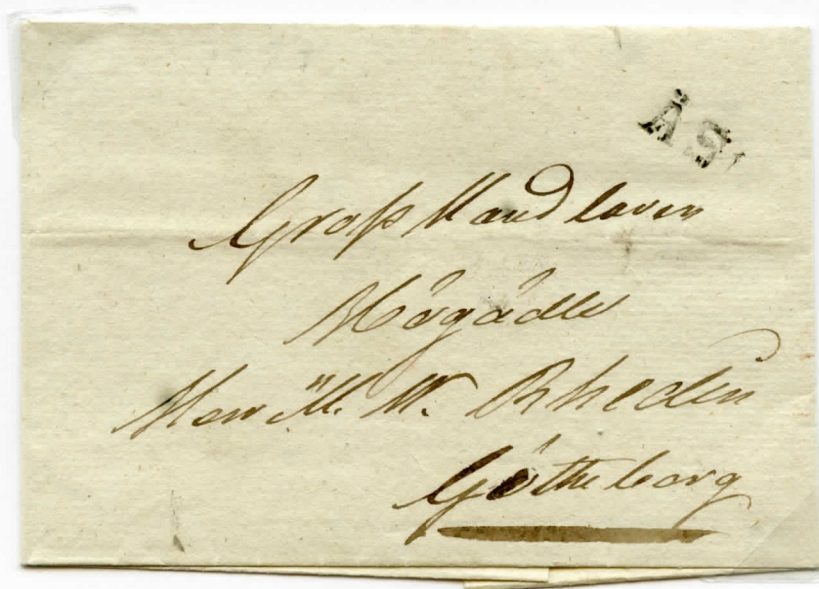 ÅS
Gross Handlaren
Högädle
Herr M. W. Rhedin
Götheborg